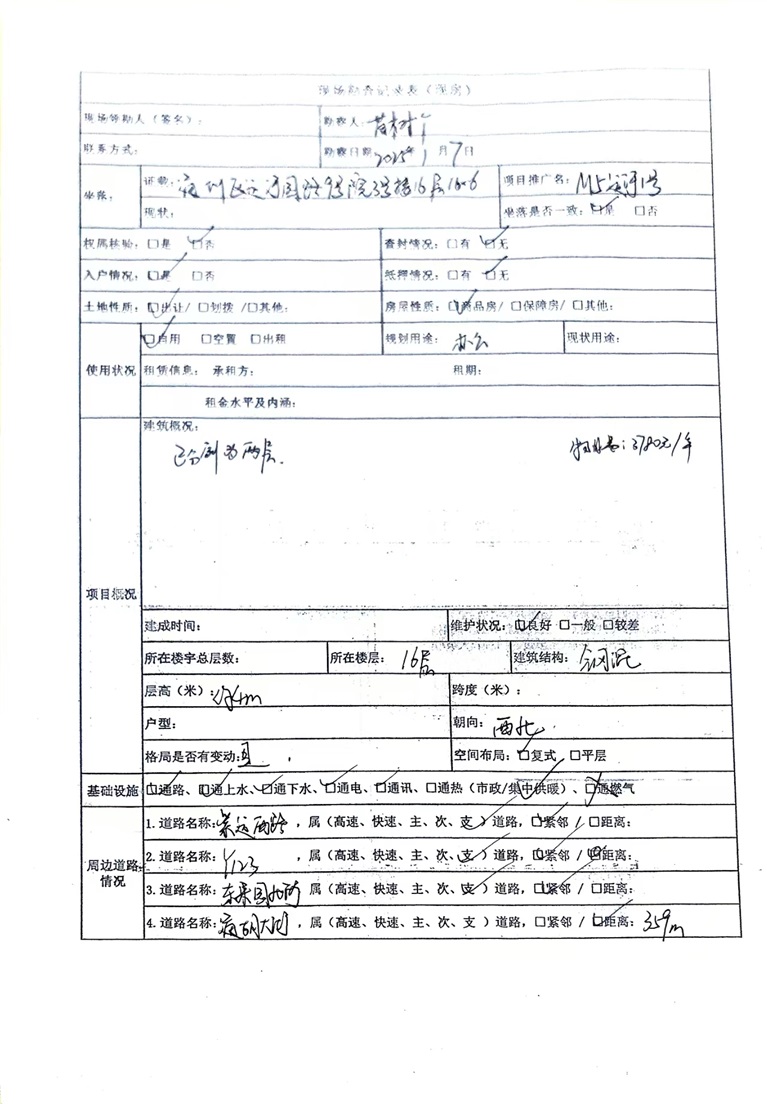 现场勘查记录表（现房）
现场领勘人（签名）： 勘察人：
联系方式： 勘察日期：2025年1月7日
坐落： 证载： 16层1606 项目推广名：M5运河1号
现状： 坐落是否一致：☑是 □否
权属核验：□是 ☑否 查封情况：□有 ☑无
入户情况：☑是 □否 抵押情况：□有 ☑无
土地性质：☑出让/ □划拨 /□其他： 房屋性质：☑商品房/ □保障房/ □其他：
使用状况 ☑自用 □空置 □出租 规划用途：办公 现状用途：
租赁信息： 承租方： 租期：
租金水平及内涵：
项目概况 建筑概况：
已分割为两层. 3780元/年
建成时间： 维护状况：☑良好 □一般 □较差
所在楼宇总层数： 所在楼层：16层 建筑结构：钢混
层高（米）： 跨度（米）：
户型： 朝向：西北
格局是否有变动： 空间布局：☑复式 □平层
基础设施 ☑通路、☑通上水、☑通下水、☑通电、☑通讯、□通热（市政/集中供暖）、□通燃气
周边道路情况 1.道路名称： ，属（高速、快速、主、次、支）道路，☑紧邻 / □距离：
2.道路名称：Y123 ，属（高速、快速、主、次、支）道路，☑紧邻 / □距离：
3.道路名称： 属（高速、快速、主、次、支）道路，☑紧邻 / □距离：
4.道路名称： ，属（高速、快速、主、次、支 ）道路，□紧邻 / ☑距离：359m